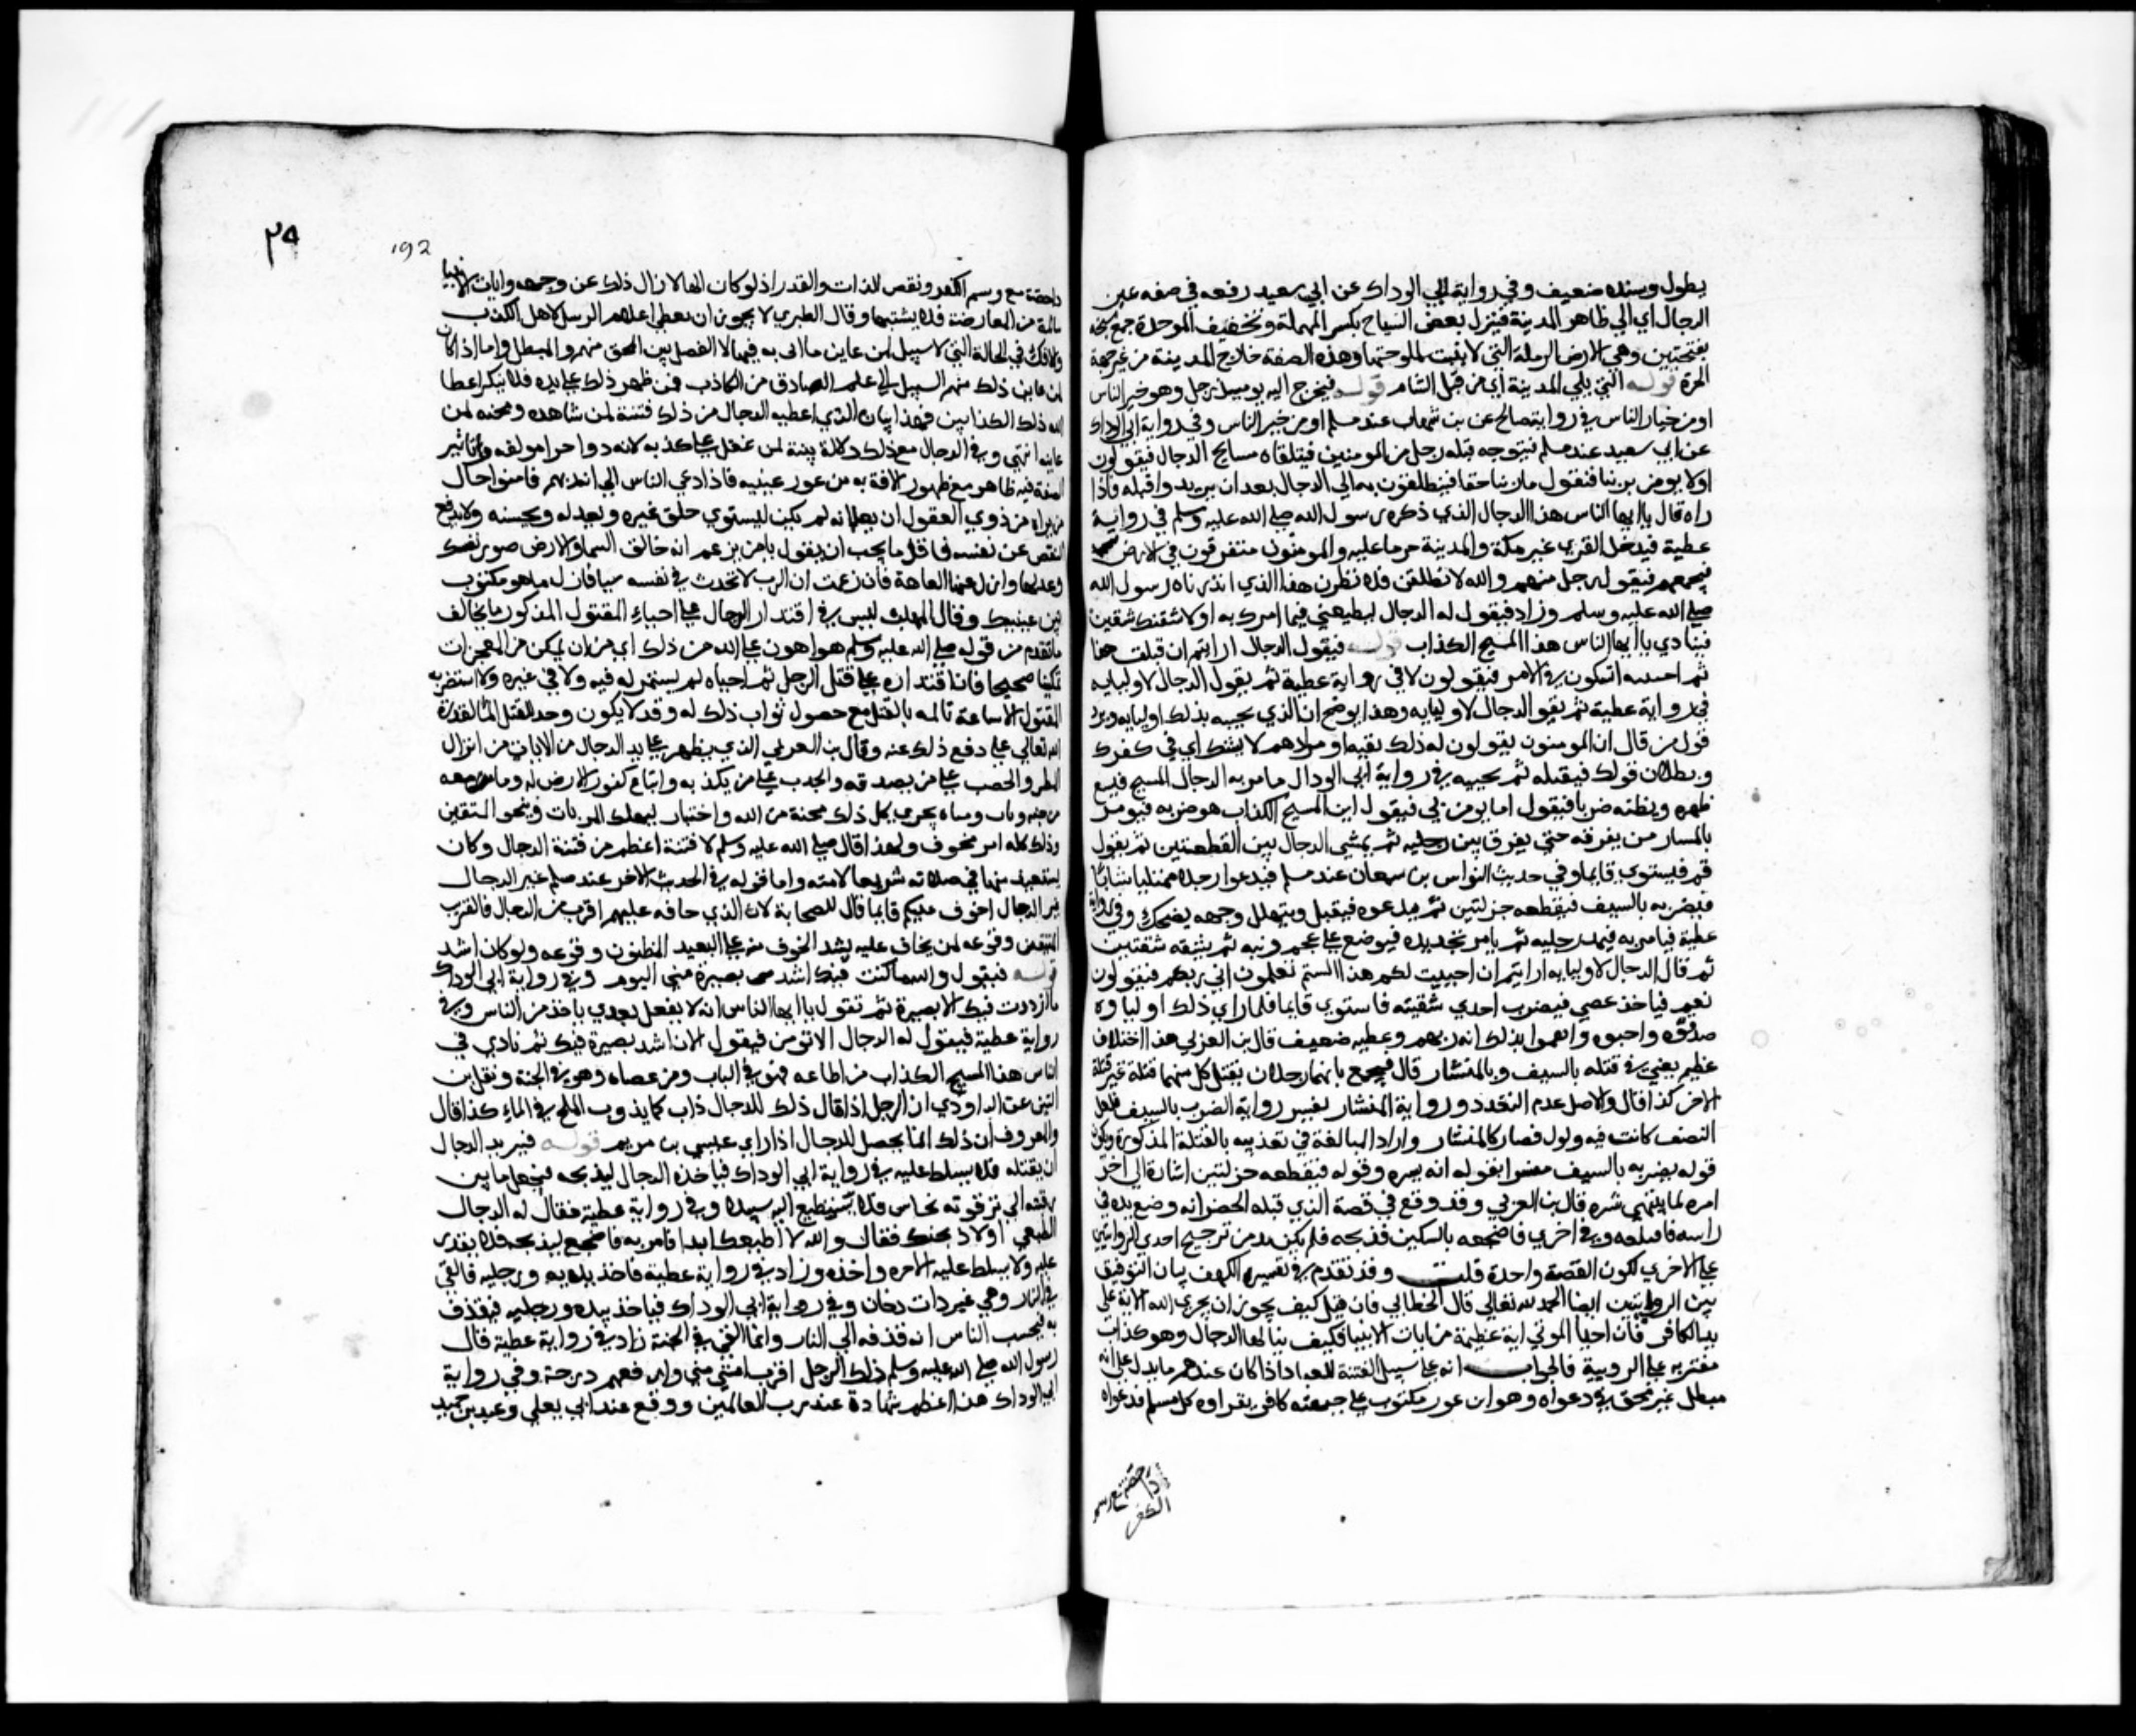 بطول وسنده ضعيف وفي رواية ابي الوداك عن ابي سعيد رفعه في صفه عين
الرجال اي الي ظاهر المدينة فينزل بعض السباح بكسر المهملة وتخفيف الموحدة جمع سبخه
بفتحتين وهي الارض الرملة التي لا ينبت لملوحتها وهذه الصفة خارج المدينة من غير جهة
الحرة قوله التي يلي المدينة اي من قبل الشام قوله فيخرج اليه يوميذ رجل وهو خير الناس
او من خيار الناس في رواية صالح عن بن شهاب عند مسلم او من خير الناس وفي رواية ابي الوداك
عن ابي سعيد عند مسلم فيتوجه قبله رجل من المومنين فيتلقاه مسايح الدجال فيقولون
اولا يومن بربنا فيقول ما بربنا خفا فينطلقون به الي الدجال بعد ان يريدوا قتله فاذا
راه قال يا ايها الناس هذا الدجال الذي ذكره رسول الله صلي الله عليه وسلم في رواية
عطية فيدخل القري غير مكة والمدينة حرمتا عليه والمومنون متفرقون في الارض
فيجمعهم فيقول رجل منهم والله لانطلقن فلانظرن هذا الذي انذرناه رسول الله
صلي الله عليه وسلم وزاد فيقول له الدجال لتطيعني فيما امرك به او لاشقنك شقين
فينادي يا ايها الناس هذا المسيح الكذاب قوله فيقول الدجال ارايتم ان قتلت هذا
ثم احييته اتشكون في الامر فيقولون لا في رواية عطية ثم يقول الدجال لاوليايه
في رواية عطية ثم يقول الدجال لاوليايه وهذا يوضح ان الذي يجيبه بذلك اوليايه ويرد
قول من قال ان المومنون يقولون له ذلك تقيه او مرادهم لا نشك اي في كفرك
وبطلان قولك فيقتله ثم يحييه في رواية ابي الوداك فيامر به الدجال المسيح فيشبع
ظهره وبطنه ضربا فيقول اما يومن بي فيقول انت المسيح الكذاب هو ضربه فيومر
بالمسار من مفرقه حتي يفرق بين رجليه ثم يمشي الدجال بين القطعتين ثم يقول
قم فيستوي قايما وفي حديث النواس بن سمعان عند مسلم فيدعوا رجلا ممتليا شابا
فيضربه بالسيف فيقطعه جزلتين ثم يدعوه فيقبل ويتهلل وجهه يضحك وفي رواية
عطية فيامر به فيمد رجليه ثم يامر بحديده فيوضع علي عجم ذنبه ثم يشقه شقتين
ثم قال الدجال لاوليايه ارايتم ان احييت لكم هذا الستم تعلمون اني ربكم فيقولون
نعم فياخذ عصي فيضرب احدي شقيته فاستوي قايما فلما راي ذلك اولياوه
صدقوه واحبوه وايقنوا بذلك انه ربهم وعطيه ضعيف قال بن العربي هذا اختلاف
عظيم يعني في قتله بالسيف وبالمنشار قال فيجمع بانهما رجلان يقتل كل منهما قتلة غير قتلة
الاخر كذا قال والاصل عدم التعدد ورواية المنشار تفسير رواية الضرب بالسيف فلعل
السيف كانت فيه فلول فصار كالمنشار واراد المبالغة في تعذيبه بالقتلة المذكورة ويكون
قوله يضربه بالسيف مفسرا بقوله انه نشره وقوله فيقطعه جزلتين اشارة الي اخر
امره لما ينتهي نشره قال بن العربي وقد وقع في قصة الذي قتله الخضر انه وضع يده في
راسه فاقتلعه وفي اخري فاضجعه بالسكين فذبحه فلم يكن بد من ترجيح احدي الروايتين
علي الاخري لكون القصة واحدة قلت وقد تقدم في تفسير الكهف بيان التوفيق
بين الروايتين ايضا الحمد لله تعالي قال الخطابي فان قيل كيف يجوز ان يجري الله الاية علي
يد الكافر فان احيا الموتي اية عظيمة من ايات الانبيا فكيف ينالها الدجال وهو كذاب
مفتر يدعي الربوبية فالجواب انه علي سبيل الفتنة للعباد اذا كان عندهم ما يدل علي انه
مبطل غير محق في دعواه وهو انه عور مكتوب علي جبهته كافر يقراوه كل مسلم فدعواه
داحضة مع وسم
الكفر
٢٩
192
داحضة مع وسم الكفر ونقص الذات والقدر اذ لو كان الها لازال ذلك عن وجهه وايات الانبيا
سالمة من المعارضة فلا يشتبها وقال الطبري لا يجوز ان يعطي اعلام الرسل لاهل الكذب
والافك في الحالة التي لا سبيل لمن عاين ما اتي به فيها الا الفصل بين المحق منهم والمبطل واما اذا كان
لمن عاين ذلك منهم السبيل الي علم الصادق من الكاذب فمن ظهر ذلك علي يده فلا ينكر اعطا
الله ذلك الكذابين فهذا بيان الذي اعطيه الدجال من ذلك فتنة لمن شاهده ومحنه لمن
عاينه انتهي وفي الدجال مع ذلك دلالة بينة لمن عقل علي كذبه لانه ذو اجزا مولفه وتاثير
الصنعة فيه ظاهر مع ظهور الافة به من عور عينيه فاذا دعي الناس الي انه ربهم فاسوا حال
من يراه من ذوي العقول ان يعلم انه لم يكن ليسوي خلق غيره ويعدله ويحسنه ولا يدفع
النقص عن نفسه فاقل ما يجب ان يقول يا من يزعم انه خالق السما والارض صور نفسك
وعدلها وازل عنها العاهة فان زعمت ان الرب لا يحدث في نفسه شيا فازل ما هو مكتوب
بين عينيك وقال المهلب ليس في اقتدار الدجال علي احياء المقتول المذكور ما يخالف
ما تقدم من قوله صلي الله عليه وسلم هو اهون علي الله من ذلك اي من ان يمكن من المعجزات
تمكينا صحيحا فان اقتداره علي قتل الرجل ثم احياه لم يستمر له فيه ولا في غيره ولا استضر به
المقتول الا ساعة تالمه بالقتل مع حصول ثواب ذلك له وقد لا يكون وجد للقتل الما لقدرة
الله تعالي علي دفع ذلك عنه وقال بن العربي الذي يظهر علي يد الدجال من الايات من انزال
المطر والخصب علي من يصدقه والجدب علي من يكذبه واتباع كنوز الارض له وما معه
من جنة ونار ومياه تجري كل ذلك محنة من الله واختبار ليهلك المرتاب وينجو المتيقن
وذلك كله امر مخوف ولهذا قال صلي الله عليه وسلم لا فتنة اعظم من فتنة الدجال وكان
يستعيذ منها في صلاته تشريعا لامته واما قوله في الحديث الاخر عند مسلم غير الدجال
غير الدجال اخوف عليكم فانما قال للصحابة لان الذي خافه عليهم اقرب من الدجال فالقريب
المتيقن وقوعه لمن يخاف عليه يشتد الخوف منه علي البعيد المظنون وقوعه ولو كان اشد
قوله فيقول والله ما كنت فيك اشد بصيرة مني اليوم وفي رواية ابي الوداك
ما ازددت فيك الا بصيرة ثم يقول يا ايها الناس انه لا يفعل بعدي باحد من الناس وفي
رواية عطية فيقول له الدجال الا تومن فيقول الان اشد بصيرة فيك ثم نادي في
الناس هذا المسيح الكذاب من اطاعه فهو في النار ومن عصاه فهو في الجنة ونقل بن
التين عن الداودي ان الرجل اذا قال ذلك للدجال ذاب كما يذوب الملح في الماء كذا قال
والمعروف ان ذلك انما يحصل للدجال اذا راي عيسي بن مريم قوله فيريد الدجال
ان يقتله فلا يسلط عليه في رواية ابي الوداك فياخذه الدجال ليذبحه فيجعل ما بين
رقبته الي ترقوته نحاس فلا يستطيع اليه سبيلا وفي رواية عطية فقال له الدجال
لتطيعني او لاذبحنك فقال والله لا اطيعك ابدا فامر به فاضجع ليذبحه فلا يقدر
عليه ولا يسلط عليه مرة واحدة وزاد في رواية عطية فاخذ بيديه ورجليه فالقي
في النار وهي غير ذات دخان وفي رواية ابي الوداك فياخذ بيديه ورجليه فيقذف
به فيحسب الناس انه قذفه الي النار وانما القي في الجنة زاد في رواية عطية قال
رسول الله صلي الله عليه وسلم ذلك الرجل اقرب امتي مني وارفعهم درجة وفي رواية
ابي الوداك هذا اعظم شهادة عند رب العالمين ووقع عند ابي يعلي وعبد بن حميد